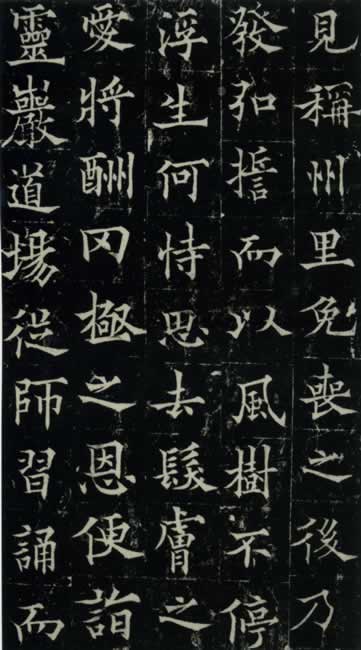 見稱州里免喪之後乃
發弘誓而以風樹不停
浮生何恃思去髮膚之
愛將酬罔極之恩便詣
靈巖道場從師習誦而